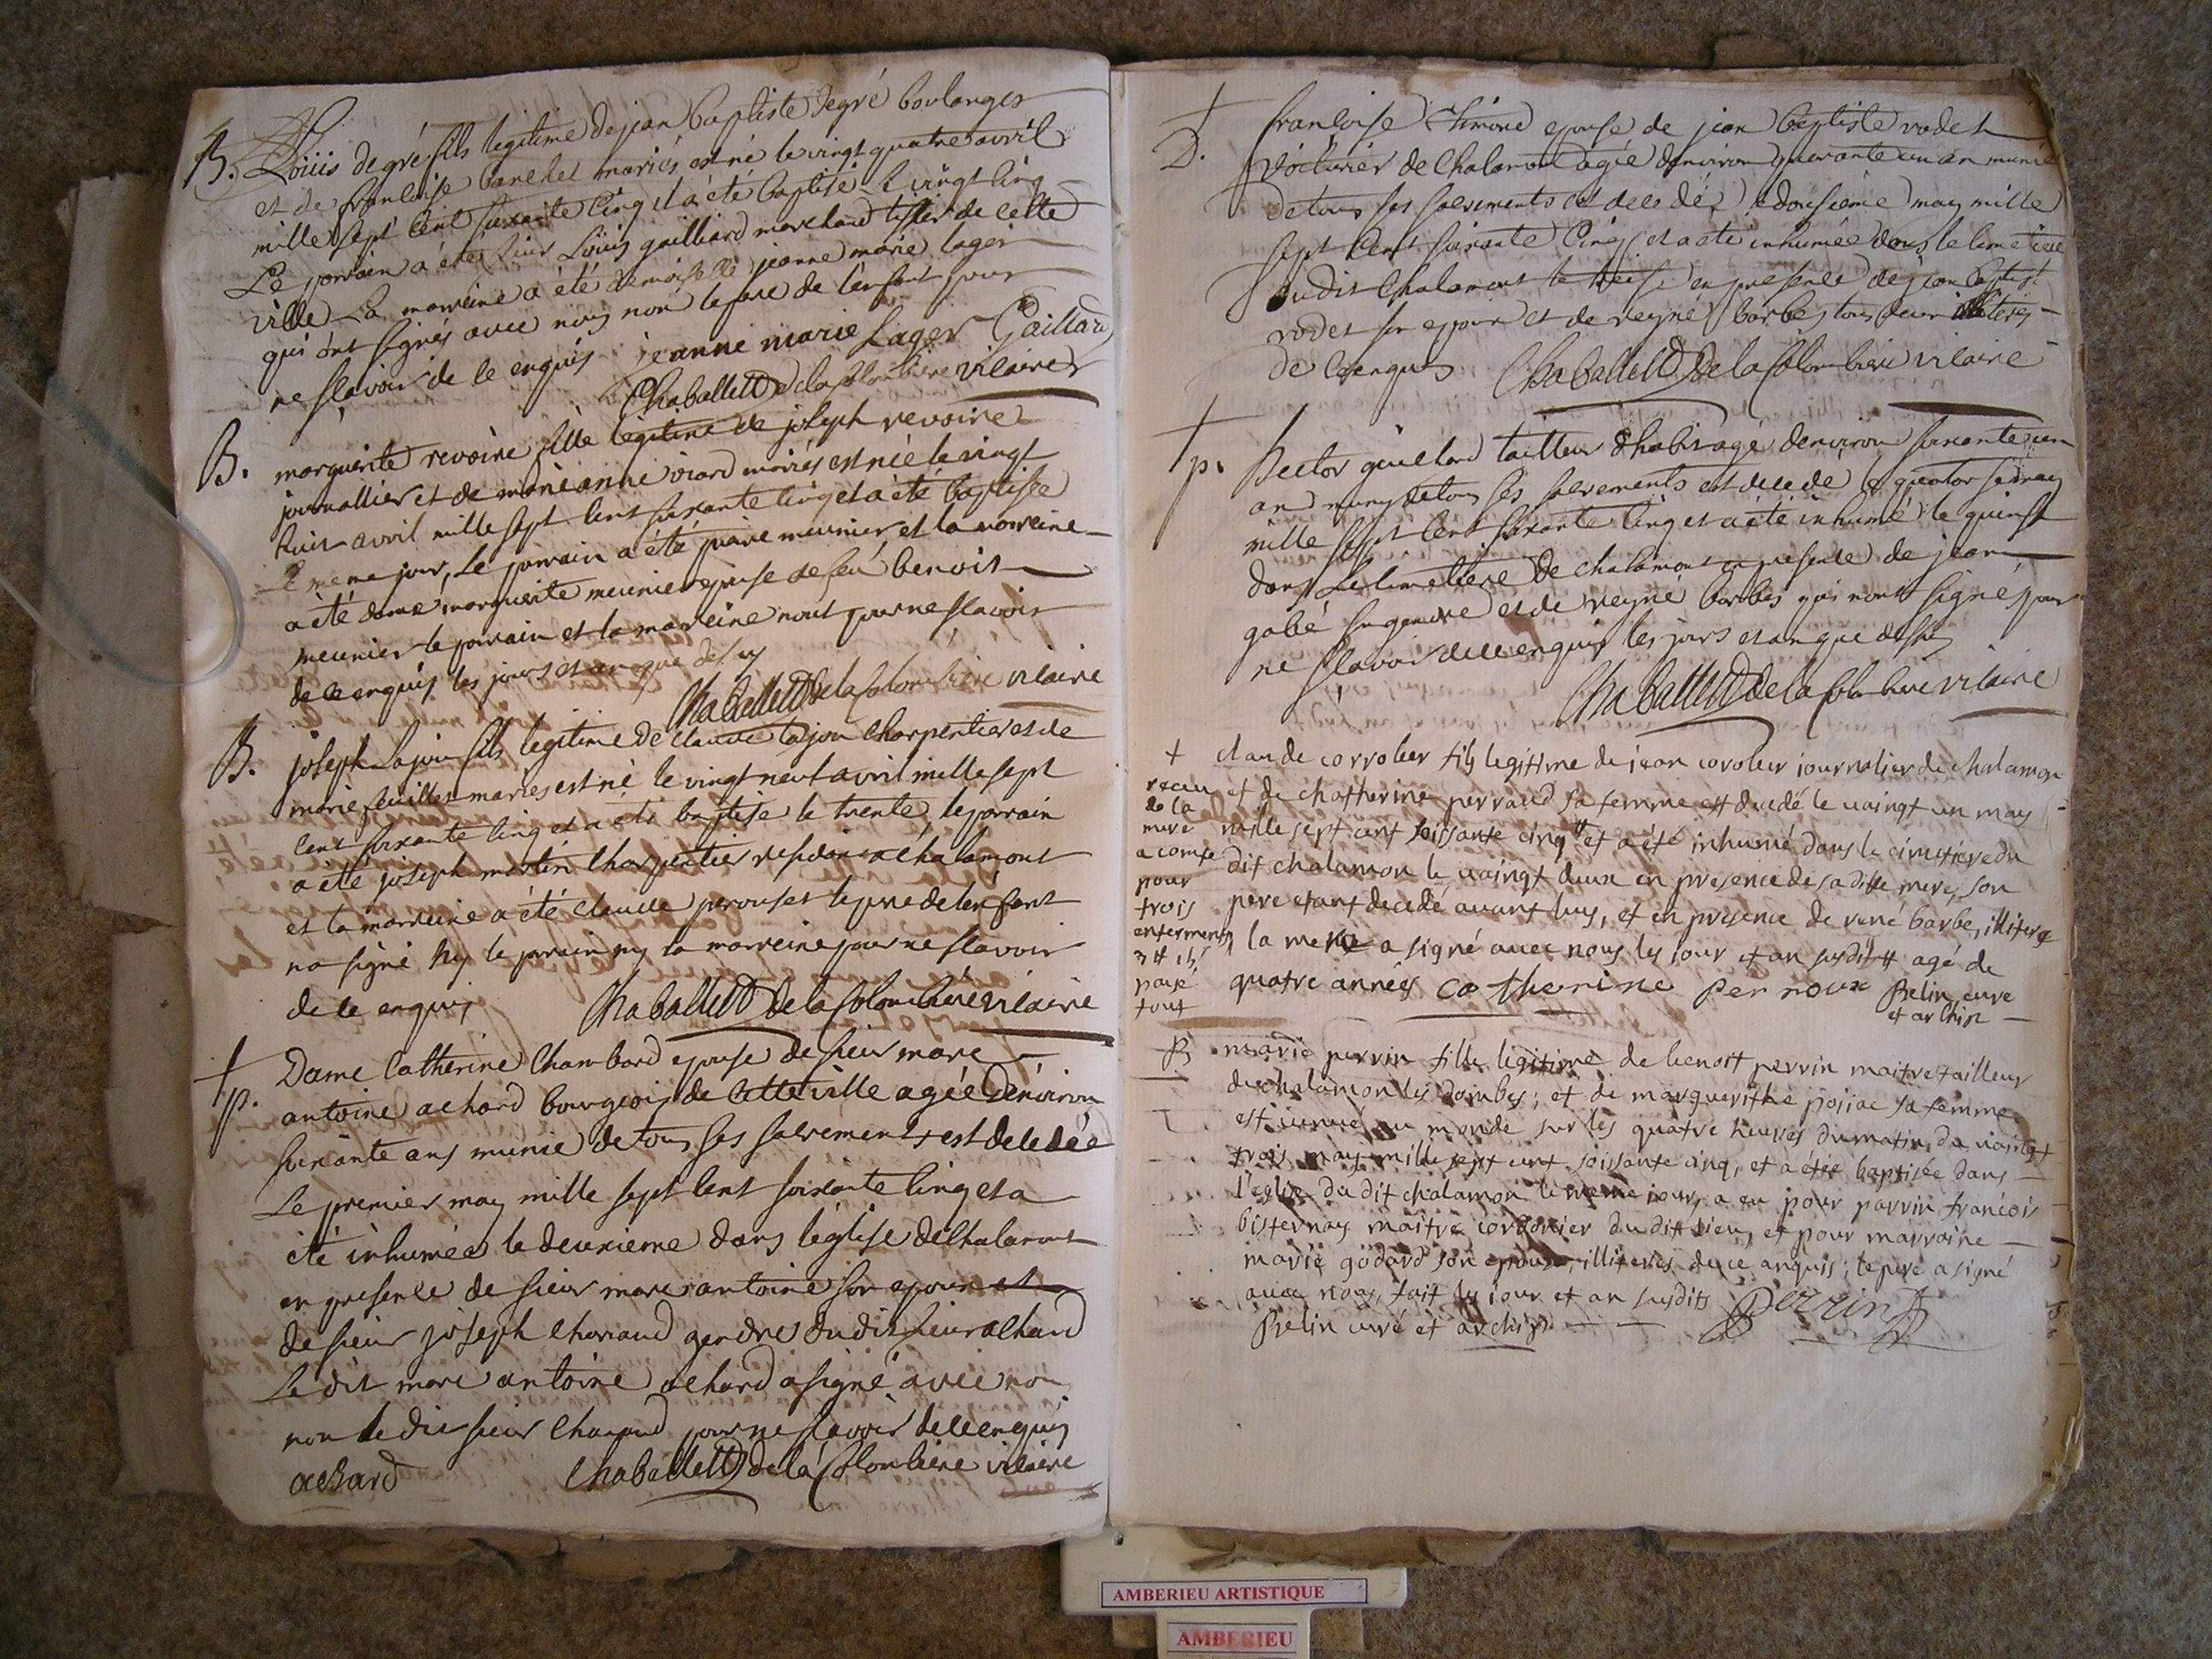 B. Loüis degré fils legitime de jean baptiste degré boulanger
et de francoise banchet mariés est né le vingt quatre avril
mille sept cent soixante cinq et a été baptisé le vingt cinq
Le parrain a été sieur Loüis gailliard marchand de cette
ville La marreine a été demoiselle jeanne marie lager
qui ont signés avec nous non le pere de l'enfant pour
ne scavoir de ce enquis jeanne marie Lager Gaillard
Chaballett de la Colombiere vicaire
B. marguerite revoire fille legitime de joseph revoire
journallier et de marianne mariés est née le vingt
huit avril mille sept cent soixante cinq et a été baptisée
Le meme jour, Le parrain a été meunier, et la marreine
a été dame marguerite meunier epouse de feu benoit
meunier le parrain et la marreine nont pour ne scavoir
de ce enquis les jours et an que dessus
Chaballett de la Colombiere vicaire
B. joseph lajon fils legitime de claude lajon charpentier et de
marie feuillet mariés est né le vingt neuf avril mille sept
cent soixante cinq et a été baptisé le trente le parrain
a été joseph martin charpentier residant a chalamont
et la marreine a été claude perouset le pere de lenfant
na signé ny le parrain ny la marreine pour ne scavoir
de ce enquis Chaballett de la Colombiere vicaire
† p. Dame Catherine Chambard epouse de sieur marc
antoine achard bourgeois de cette ville agée denviron
soixante ans munie de tous ses sacrements est decedée
Le premier may mille sept cent soixante cinq et a
été inhumée le deuxieme dans l'église de Chalamont
en presence de sieur marc antoine son epoux et
de sieur joseph gendre du dit sieur achard
Le dit marc antoine achard a signé avec nous
non le dit sieur pour ne scavoir de ce enquis
achard Chaballett de la Colombiere vicaire
† D. francoise epouse de jean baptiste rodet
voiturier de Chalamont agée denviron quarante un an munie
de tous ses sacrements est decedée le dousieme may mille
sept cent soixante cinq et a été inhumée dans le cimetiere
dudit Chalamont le treise en presence de jean baptist
rodet son epoux et de reyné barbes tous deux illiteres
de ce enquis Chaballett de la Colombiere vicaire
† p. hector tailleur dhabit agé denviron soixante un
an muny de tous ses sacrements est decedé le quatorse may
mille sept cent soixante cinq et a été inhumé le quinse
dans le cimetiere de chalamont en presence de jean
gabé son gendre et de reyné barbes qui nont signé pour
ne scavoir de ce enquis les jours et an que dessus
Chaballett de la Colombiere vicaire
† claude corroleur fils legitime de jean coroleur journalier de chalamon
et de chatherine perraud sa femme est decedé le vaingt un may
mille sept cent soissante cinq et a été inhumé dans le cimetiere du
dit chalamon le vaingt deux en presence de sa ditte mere, son
pere etant decedé avant luy, et en presence de rené barbe, illitere
la mere a signé avec nous les jour et an susdits agé de
quatre années catherine per roux Belin curé
et archip
receu
de la
mere
a compte
pour
trois
enterments
paié
tout
B marie perrin fille legitime de benoit perrin maitre tailleur
de chalamon les dombes; et de marguerithe posiac sa femme
est venue au monde sur les quatre heures du matin du vaingt
trois may mille sept cent soissante cinq, et a étée baptisée dans
l'eglise du dit chalamon le meme jour, a eu pour parrin francois
bisternay maitre cordonier du dit lieu, et pour marraine
marie godard son epouse, illiteres de ce anquis; le pere a signé
avec nous, fait les jour et an susdits Perrin
Belin curé et archip
AMBERIEU ARTISTIQUE
AMBERIEU